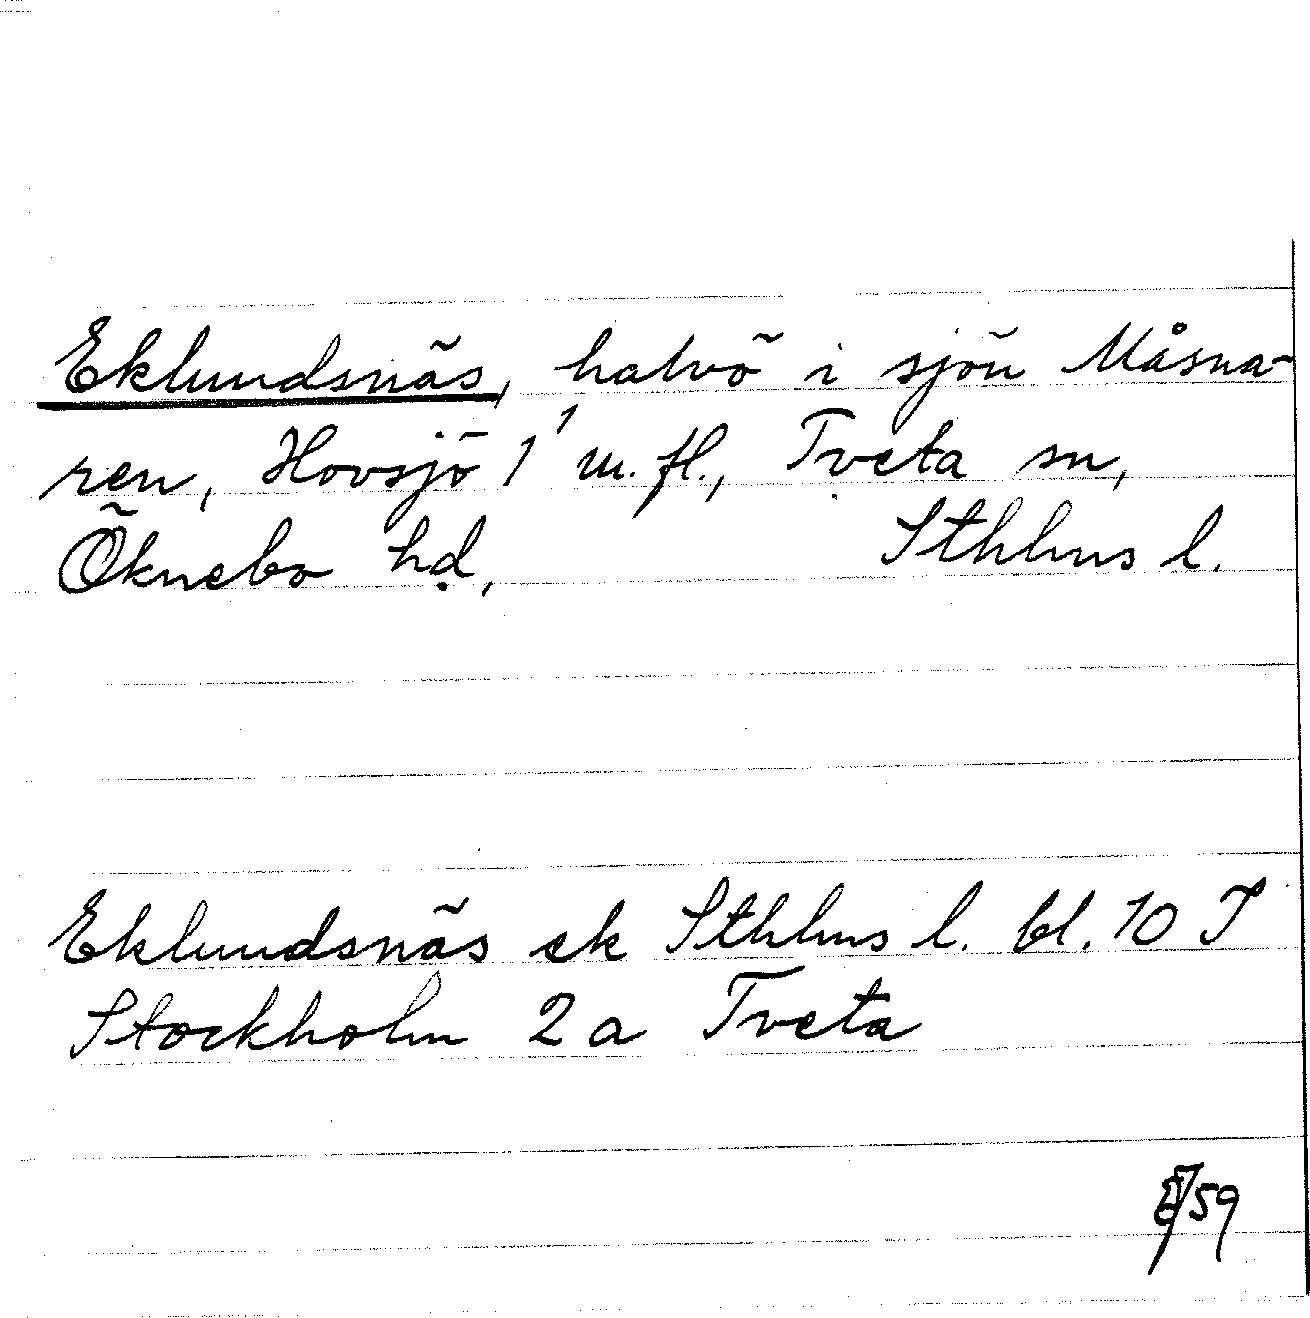 Eklundsnäs, halvö i sjön Måsna-
ren, Hovsjö 1¹ m. fl., Tveta sn,
Öknebo hd, Sthlms l.
Eklundsnäs ek Sthlms l. bl. 10 I
Stockholm 2 a Tveta
/59